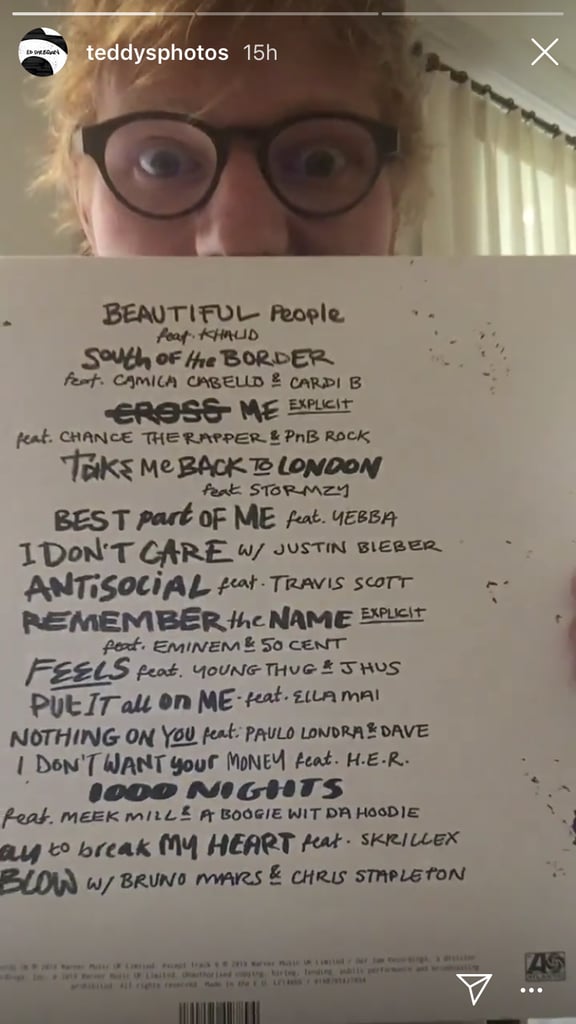 teddysphotos 15h
BEAUTIFUL People
feat. KHALID
South OF the BORDER
feat. CAMILA CABELLO & CARDI B
CROSS ME EXPLICIT
feat. CHANCE THE RAPPER & PnB ROCK
TAKE Me BACK TO LONDON
feat STORMZY
BEST part OF ME feat. YEBBA
I DON'T CARE w/ JUSTIN BIEBER
ANTiSOCIAL feat. TRAVIS SCOTT
REMEMBER the NAME EXPLICIT
feat. EMINEM & 50 CENT
FEELS feat. YOUNG THUG & J HUS
PUT IT all on ME feat. ELLA MAI
NOTHING ON YOU feat. PAULO LONDRA & DAVE
I DON'T WANT your MONEY feat. H.E.R.
1000 NIGHTS
feat. MEEK MILL & A BOOGIE WIT DA HOODIE
ay to break MY HEART feat. SKRILLEX
BLOW w/ BRUNO MARS & CHRIS STAPLETON
prohibited. All rights reserved. Made in the E.U.
ATLANTIC